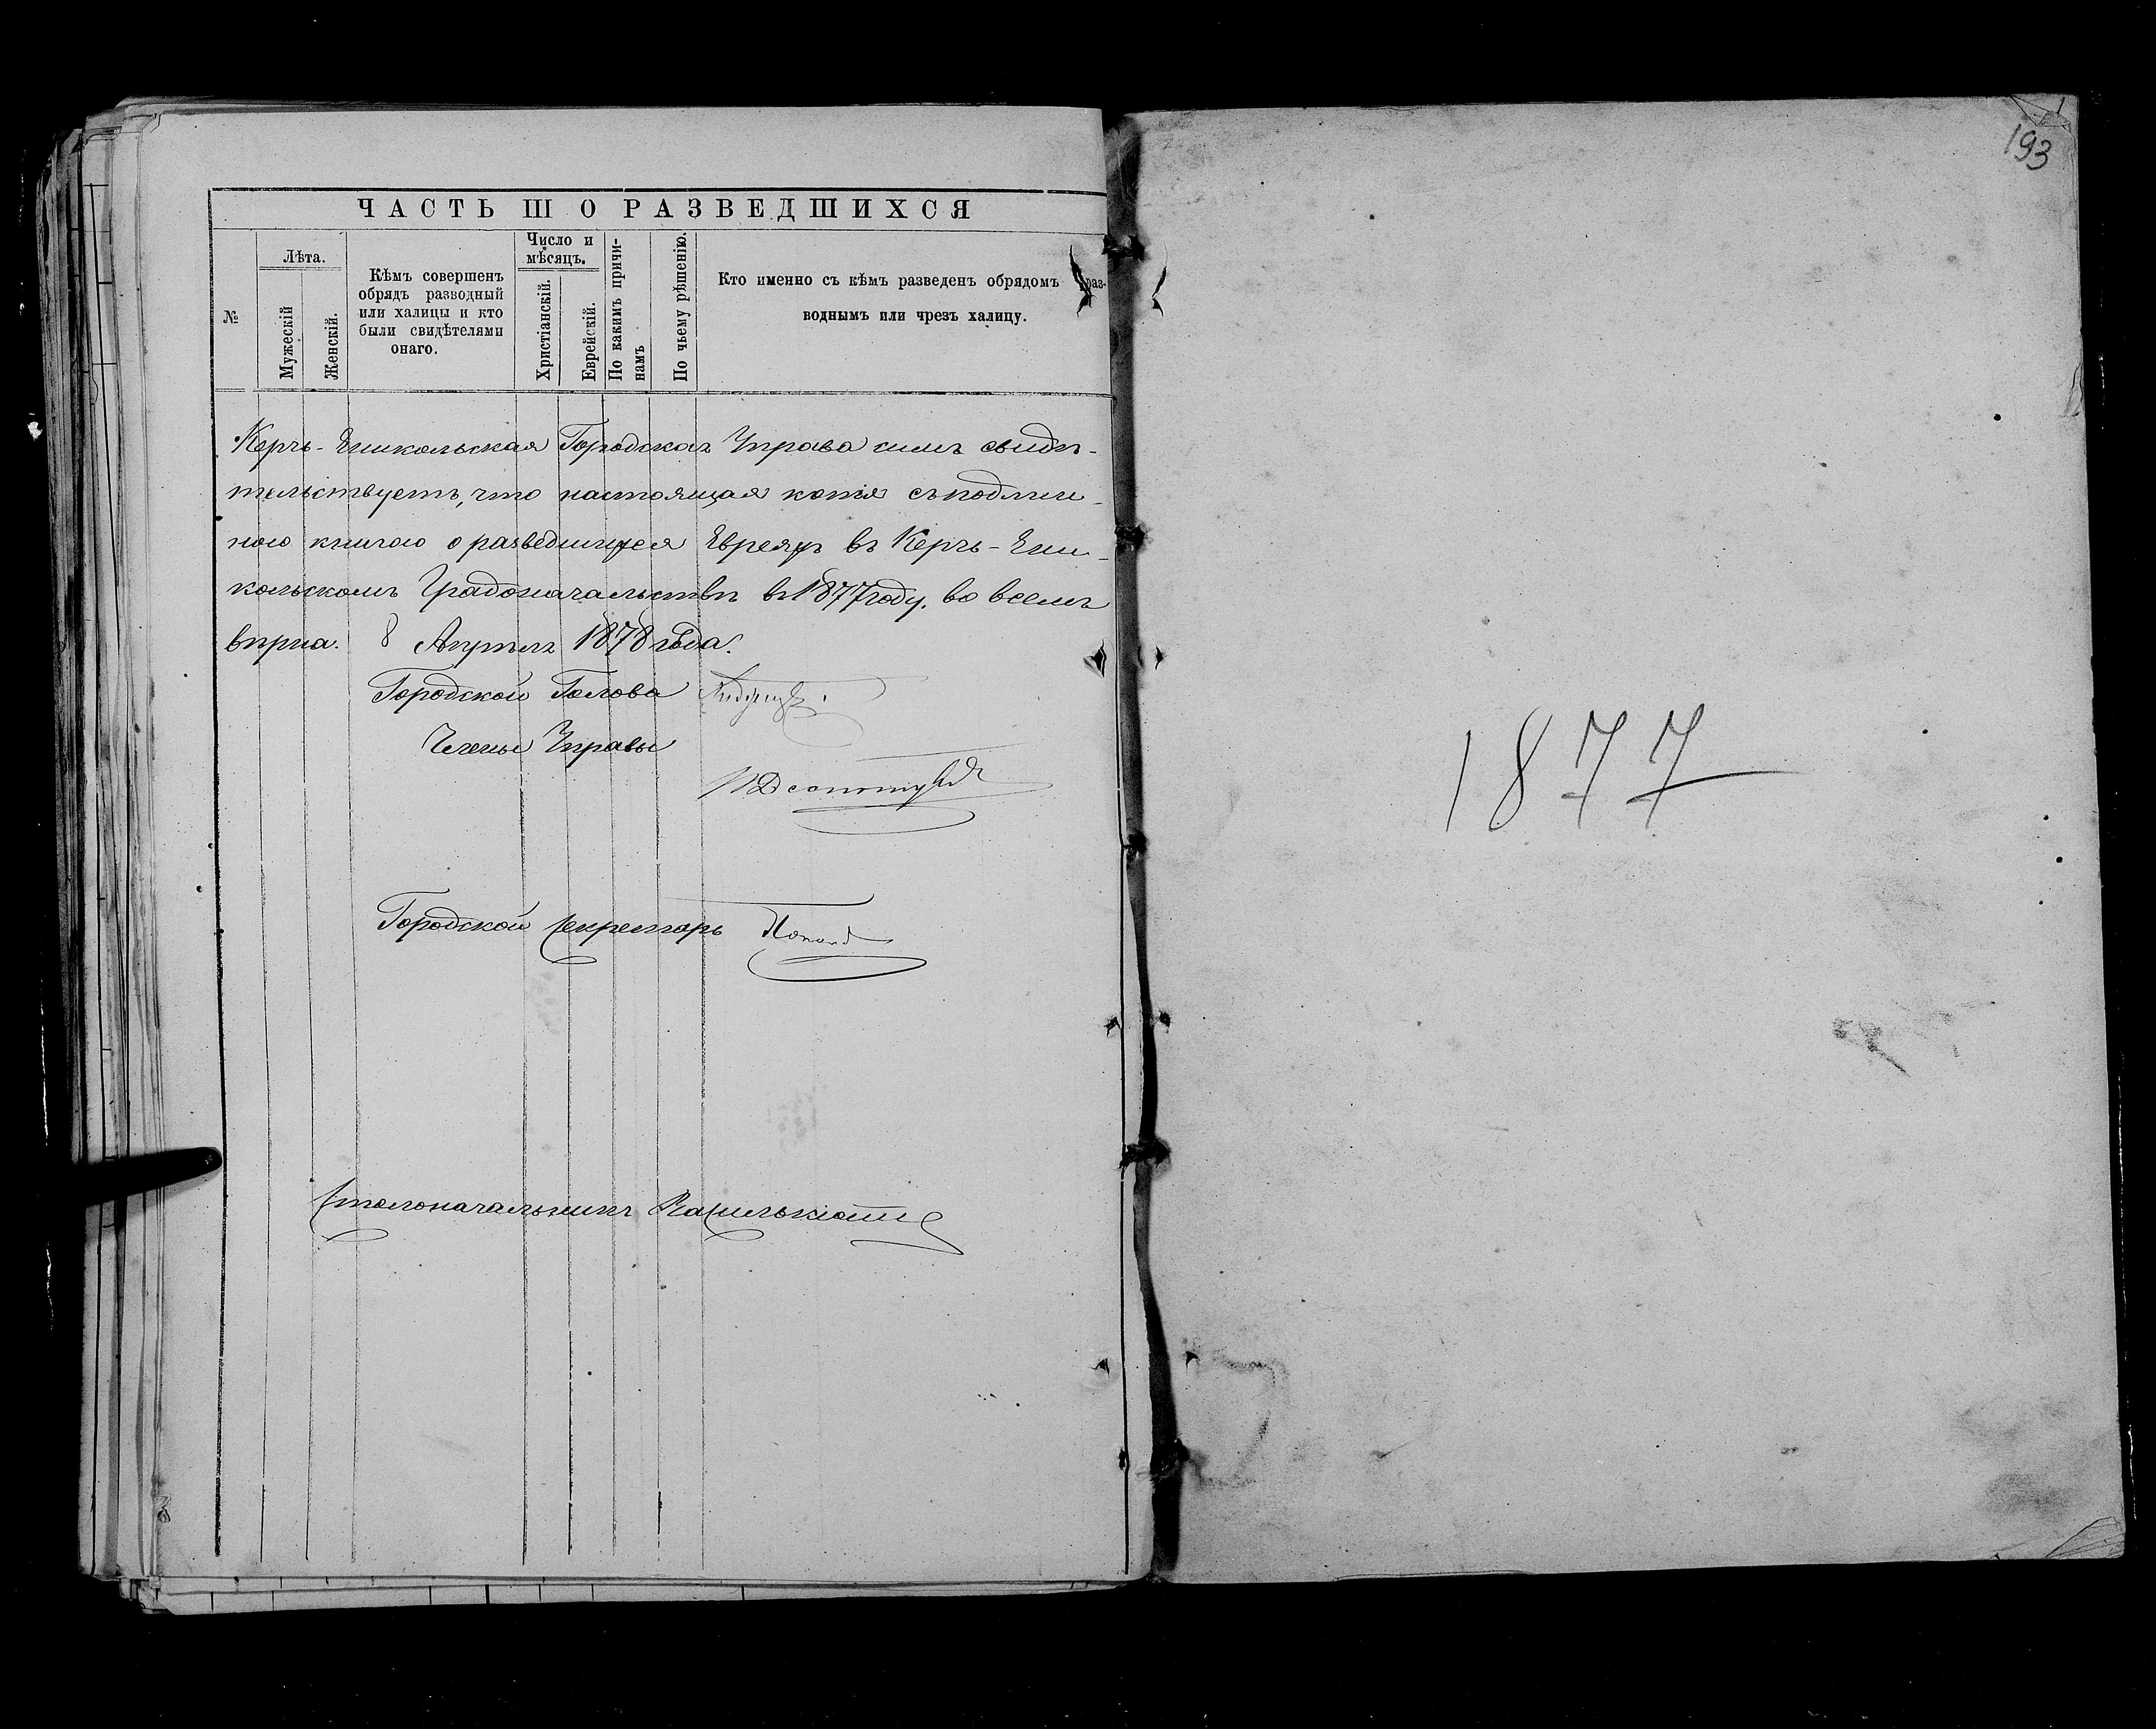 193
ЧАСТЬ III О РАЗВЕДШИХСЯ
№
Лѣта.
Мужескій
Женскій.
Кѣмъ совершенъ
обрядъ разводный
или халицы и кто
были свидѣтелями
онаго.
Число и
мѣсяцъ.
Христіанскій.
Еврейскій.
По какимъ причи-
намъ
По чьему рѣшенію.
Кто именно съ кѣмъ разведенъ обрядомъ раз-
воднымъ или чрезъ халицу.
Керчь-Еникольская Городская Управа симъ свидѣ-
тельствуетъ, что настоящая копія съ подлин-
ною книгою о разведшихся Евреяхъ въ Керчь-Ени-
кольскомъ Градоначальствѣ въ 1877 году, во всемъ
вѣрна. 8 Апрѣля 1878 года.
Городской Голова
Члены Управы
Городской Секретарь
Столоначальникъ
1877